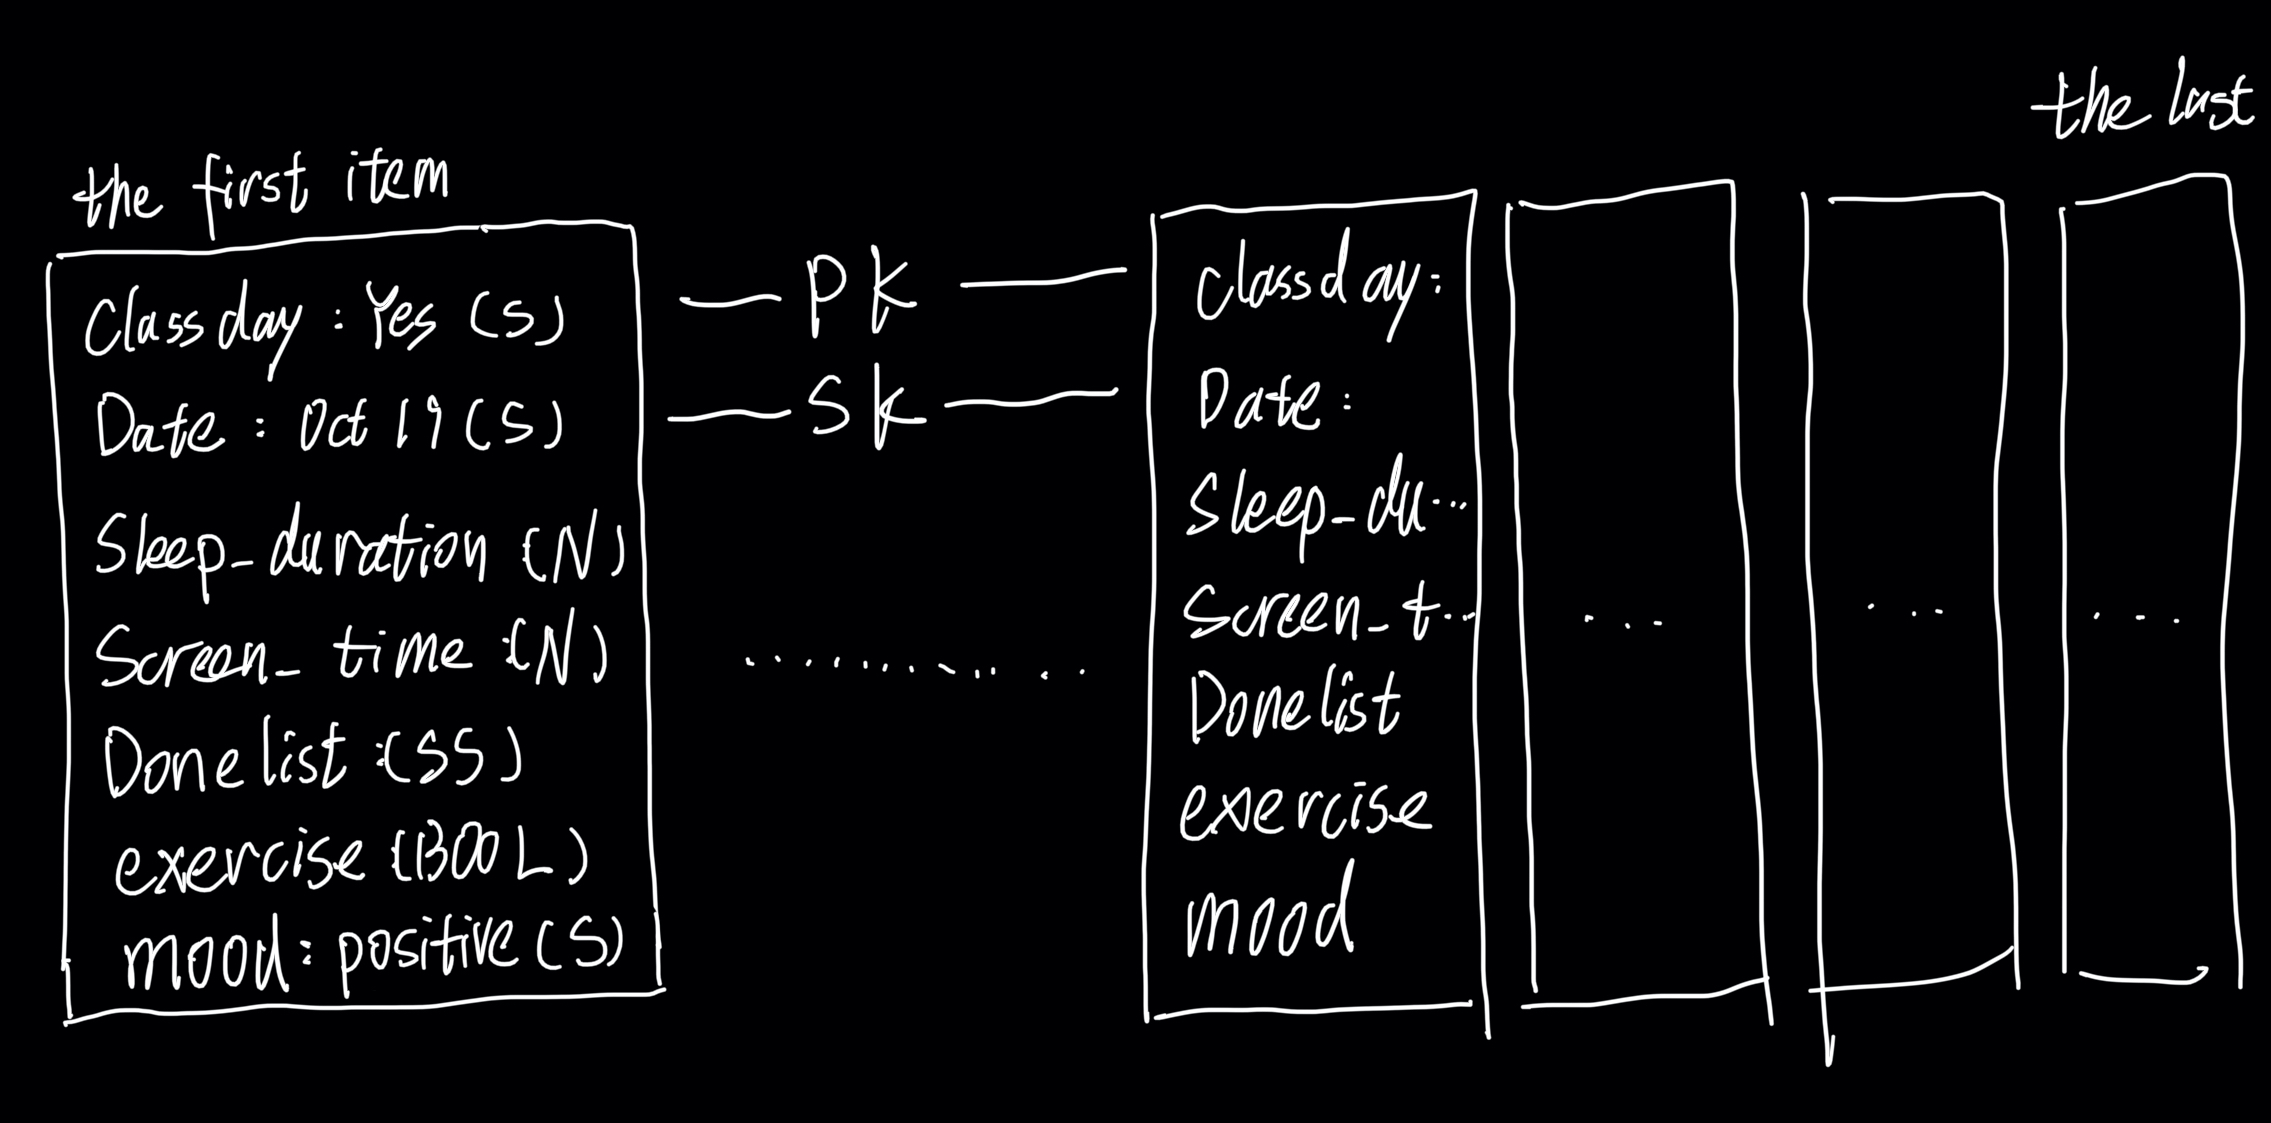 the first item
Classday : Yes (S)
Date : Oct 19 (S)
Sleep_duration (N)
Screen_ time :(N)
Donelist :(SS)
exercise (BOOL)
mood : positive (S)
PK
SK
............
classday:
Date :
Sleep_du...
Screen_t...
Donelist
exercise
mood
...
...
the last
...